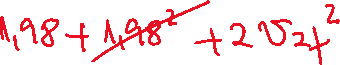 1,98 + 1,98² + 2√2x²